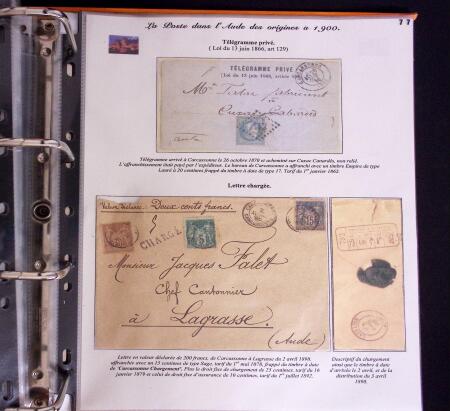 La Poste dans l'Aude des origines à 1.900.
77
Télégramme privé.
( Loi du 13 juin 1866, art 129)
TÉLÉGRAMME PRIVÉ
(Loi du 13 juin 1866, article
Aude
Télégramme arrivé à Carcassonne le 26 octobre 1870 et acheminé sur Cuxac Cabardès, non relié.
L'affranchissement était payé par l'expéditeur. Le bureau de Carcassonne a affranchi avec un timbre Empire de type
Lauré à 20 centimes frappé du timbre à date de type 17. Tarif du 1er janvier 1862.
Lettre chargée.
Valeur déclarée: Deux cents francs.
CHARGÉ
Monsieur Jacques Falet
Chef Cantonnier
à Lagrasse.
(Aude)
Lettre en valeur déclarée de 200 francs, de Carcassonne à Lagrasse du 2 avril 1898.
affranchie avec un 15 centimes de type Sage, tarif du 1er mai 1878, frappé du timbre à date
de "Carcassonne Chargement". Plus le droit fixe de chargement de 25 centimes, tarif du 16
janvier 1879 et celui de droit fixe d'assurance de 10 centimes, tarif du 1er juillet 1892.
Descriptif du chargement
ainsi que le timbre à date
d'arrivée le 2 avril, et de
la distribution du 3 avril
1898.